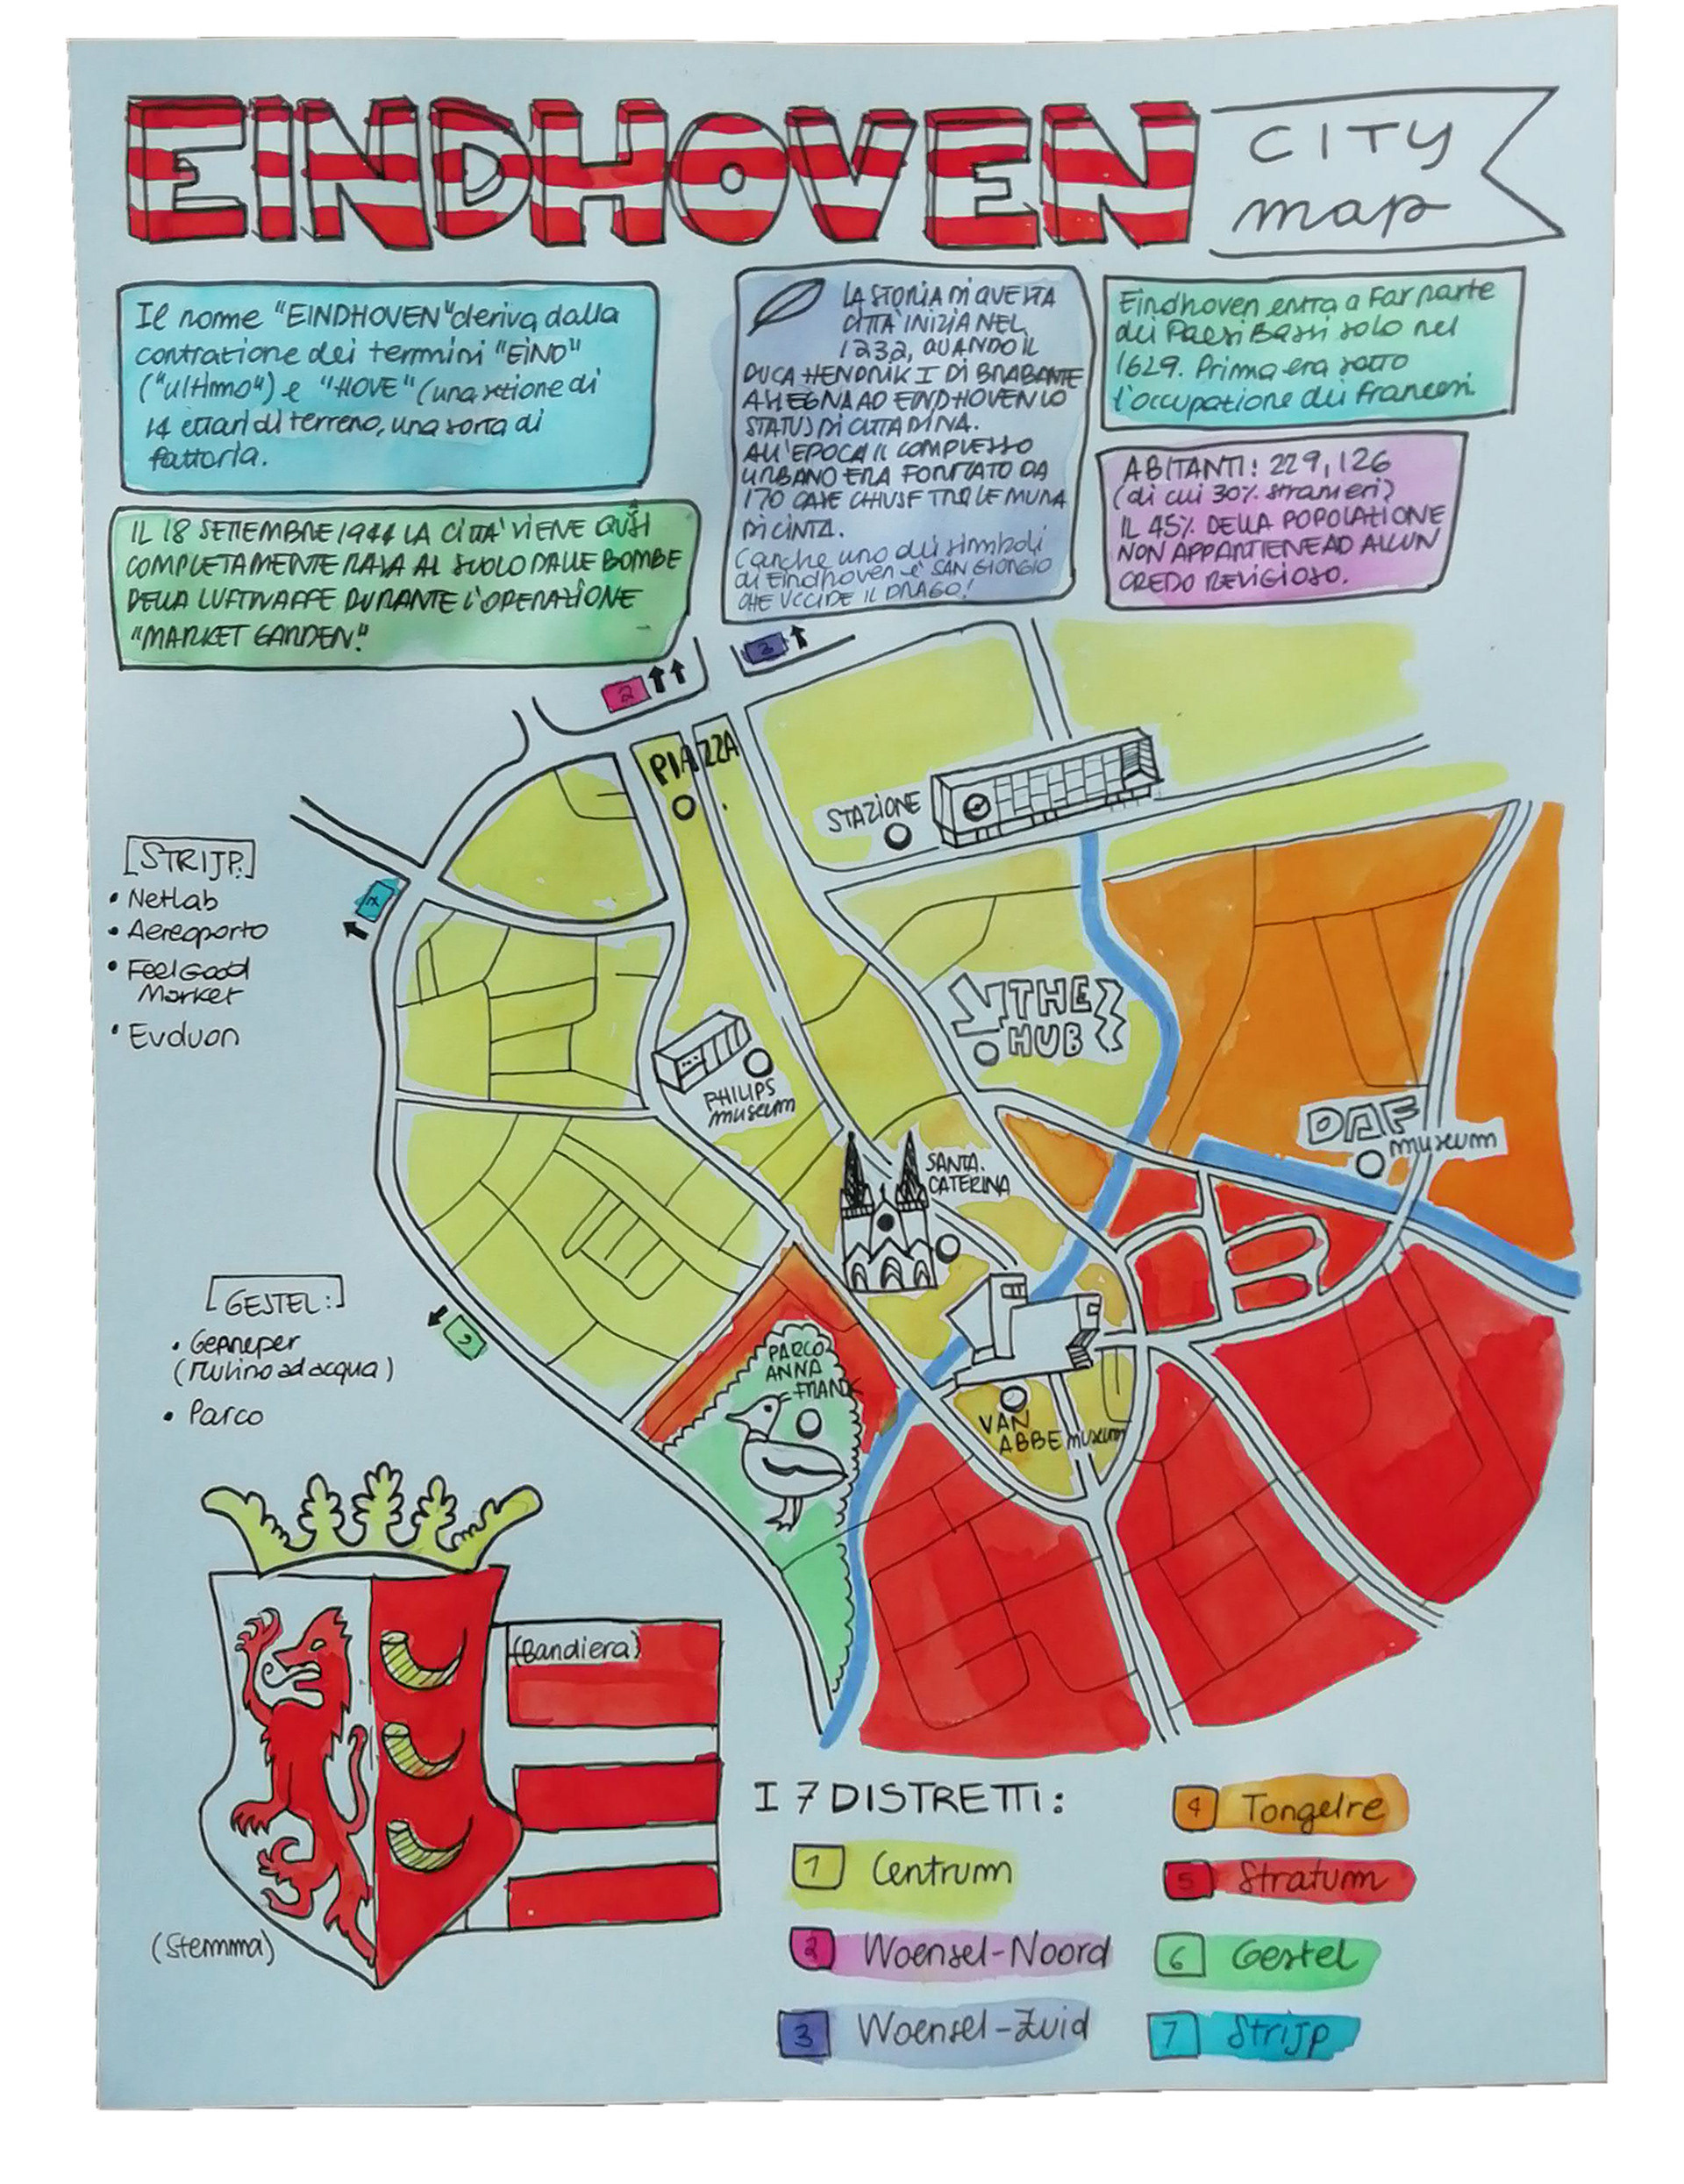 EINDHOVEN
CITY
map
Il nome "EINDHOVEN" deriva dalla
contrazione dei termini "EIND"
("ultimo") e "HOVE" (una sezione di
14 ettari di terreno, una sorta di
fattoria.
IL 18 SETTEMBRE 1944 LA CITTA' VIENE QUASI
COMPLETAMENTE RASA AL SUOLO DALLE BOMBE
DELLA LUFTWAFFE DURANTE L'OPERAZIONE
"MARKET GARDEN."
LA STORIA DI QUESTA
CITTA' INIZIA NEL
1232, QUANDO IL
DUCA HENDRIK I DI BRABANTE
ASSEGNA AD EINDHOVEN LO
STATUS DI CITTADINA.
ALL'EPOCA IL COMPLESSO
URBANO ERA FORMATO DA
170 CASE CHIUSE TRA LE MURA
DI CINTA.
(anche uno dei simboli
di Eindhoven è SAN GIORGIO
CHE UCCIDE IL DRAGO!
Eindhoven entra a far parte
dei Paesi Bassi solo nel
1629. Prima era sotto
l'occupazione dei francesi.
ABITANTI: 229,126
(di cui 30% stranieri)
IL 45% DELLA POPOLAZIONE
NON APPARTIENE AD ALCUN
CREDO RELIGIOSO.
3
2
PIAZZA
STAZIONE
STRIJP:
• Netlab
• Aereoporto
• FeelGood
Market
• Evduon
THE
HUB
PHILIPS
museum
DAF
museum
SANTA
CATERINA
GESTEL:
• Genneper
(Mulino ad acqua)
• Parco
PARCO
ANNA
FRANK
VAN
ABBE museum
(Bandiera)
(Stemma)
I 7 DISTRETTI:
1 Centrum
2 Woensel-Noord
3 Woensel-Zuid
4 Tongelre
5 Stratum
6 Gestel
7 Strijp